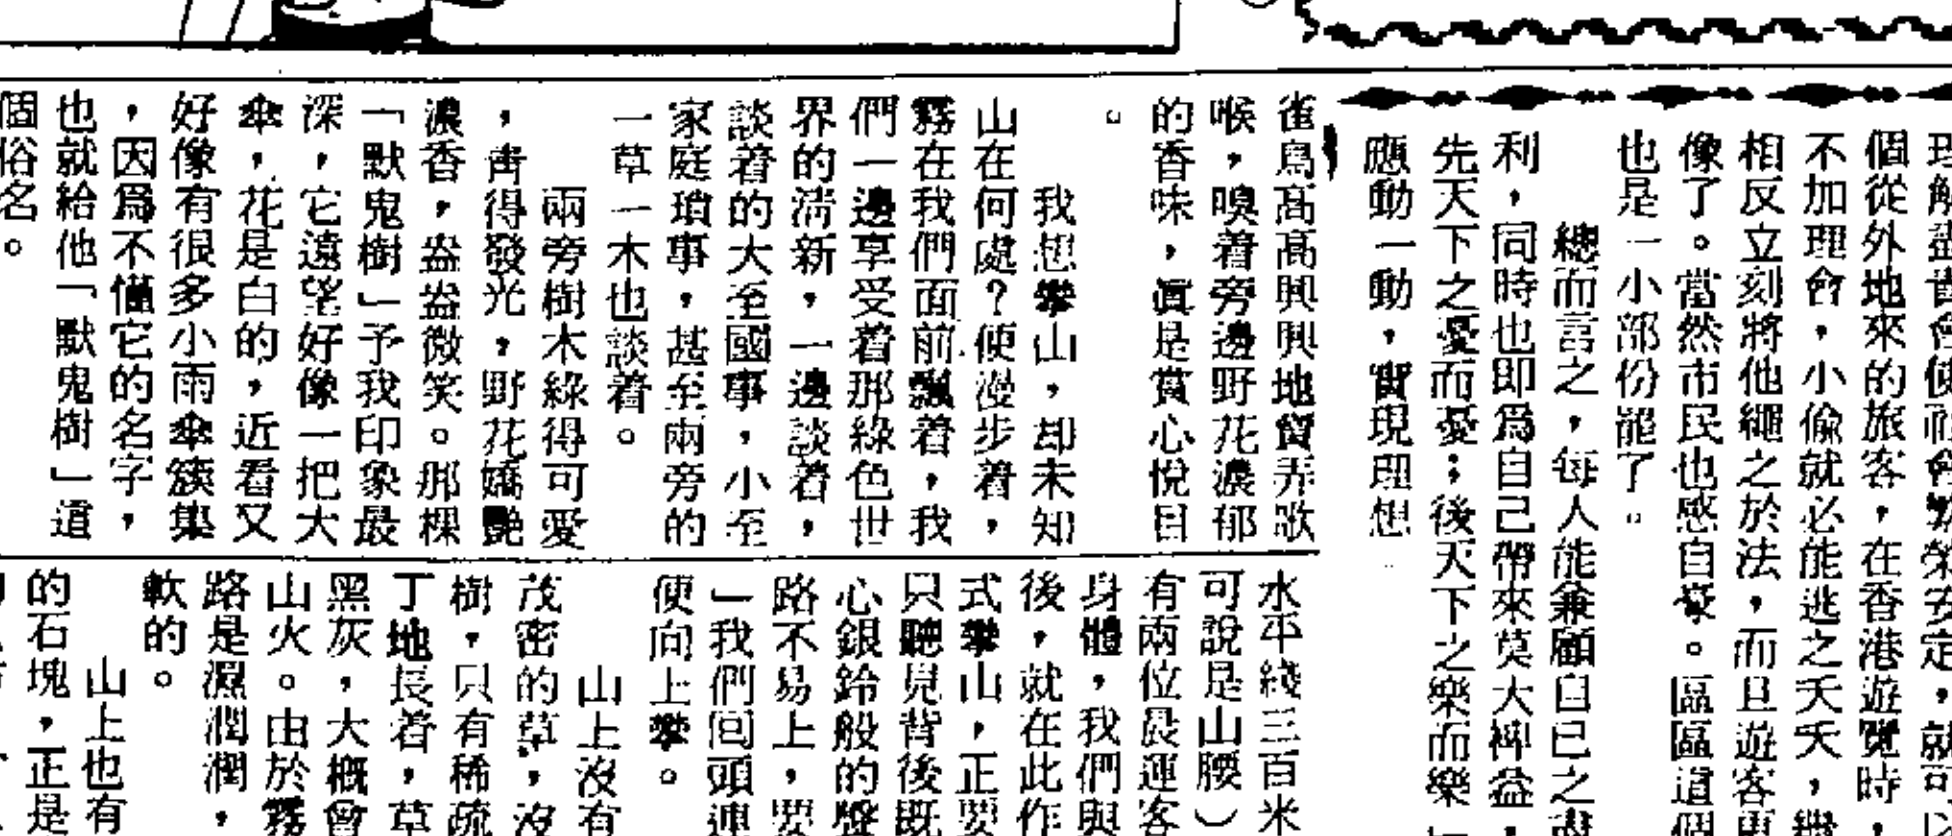 會繁榮安定，就可以
個從外地來的旅客，在香港遊覽時，
不加理會，小偷就必能逃之夭夭，
相反立刻將他繩之於法，而且遊客
像了。當然市民也感自豪。區區這個
也是一小部份罷了。
總而言之，每人能兼顧自己之
利，同時也即爲自己帶來莫大裨益，
先天下之憂而憂；後天下之樂而樂」
應動一動，實現理想
雀鳥高高興興地賣弄歌
喉，嗅着旁邊野花濃郁
的香味，眞是賞心悅目
。
我想攀山，却未知
山在何處？便漫步着，
霧在我們面前飄着，我
們一邊享受着那綠色世
界的淸新，一邊談着，
談着的大至國事，小至
家庭瑣事，甚至兩旁的
一草一木也談着。
兩旁樹木綠得可愛
，靑得發光，野花嬌艷
濃香，盈盈微笑。那棵
「默鬼樹」予我印象最
深，它遠望好像一把大
傘，花是白的，近看又
好像有很多小雨傘簇集
，因爲不懂它的名字，
也就給他「默鬼樹」這
個俗名。
水平綫三百米
可說是山腰）
有兩位晨運客
身體，我們與
後，就在此作
式攀山，正要
只聽見背後旣
心銀鈴般的聲
路不易上，要
」我們回頭連
便向上攀。
山上沒有
茂密的草，沒
樹，只有稀疏
丁地長着，草
黑灰，大概曾
山火。由於霧
路是濕潤潤，
軟的。
山上也有
的石塊，正是